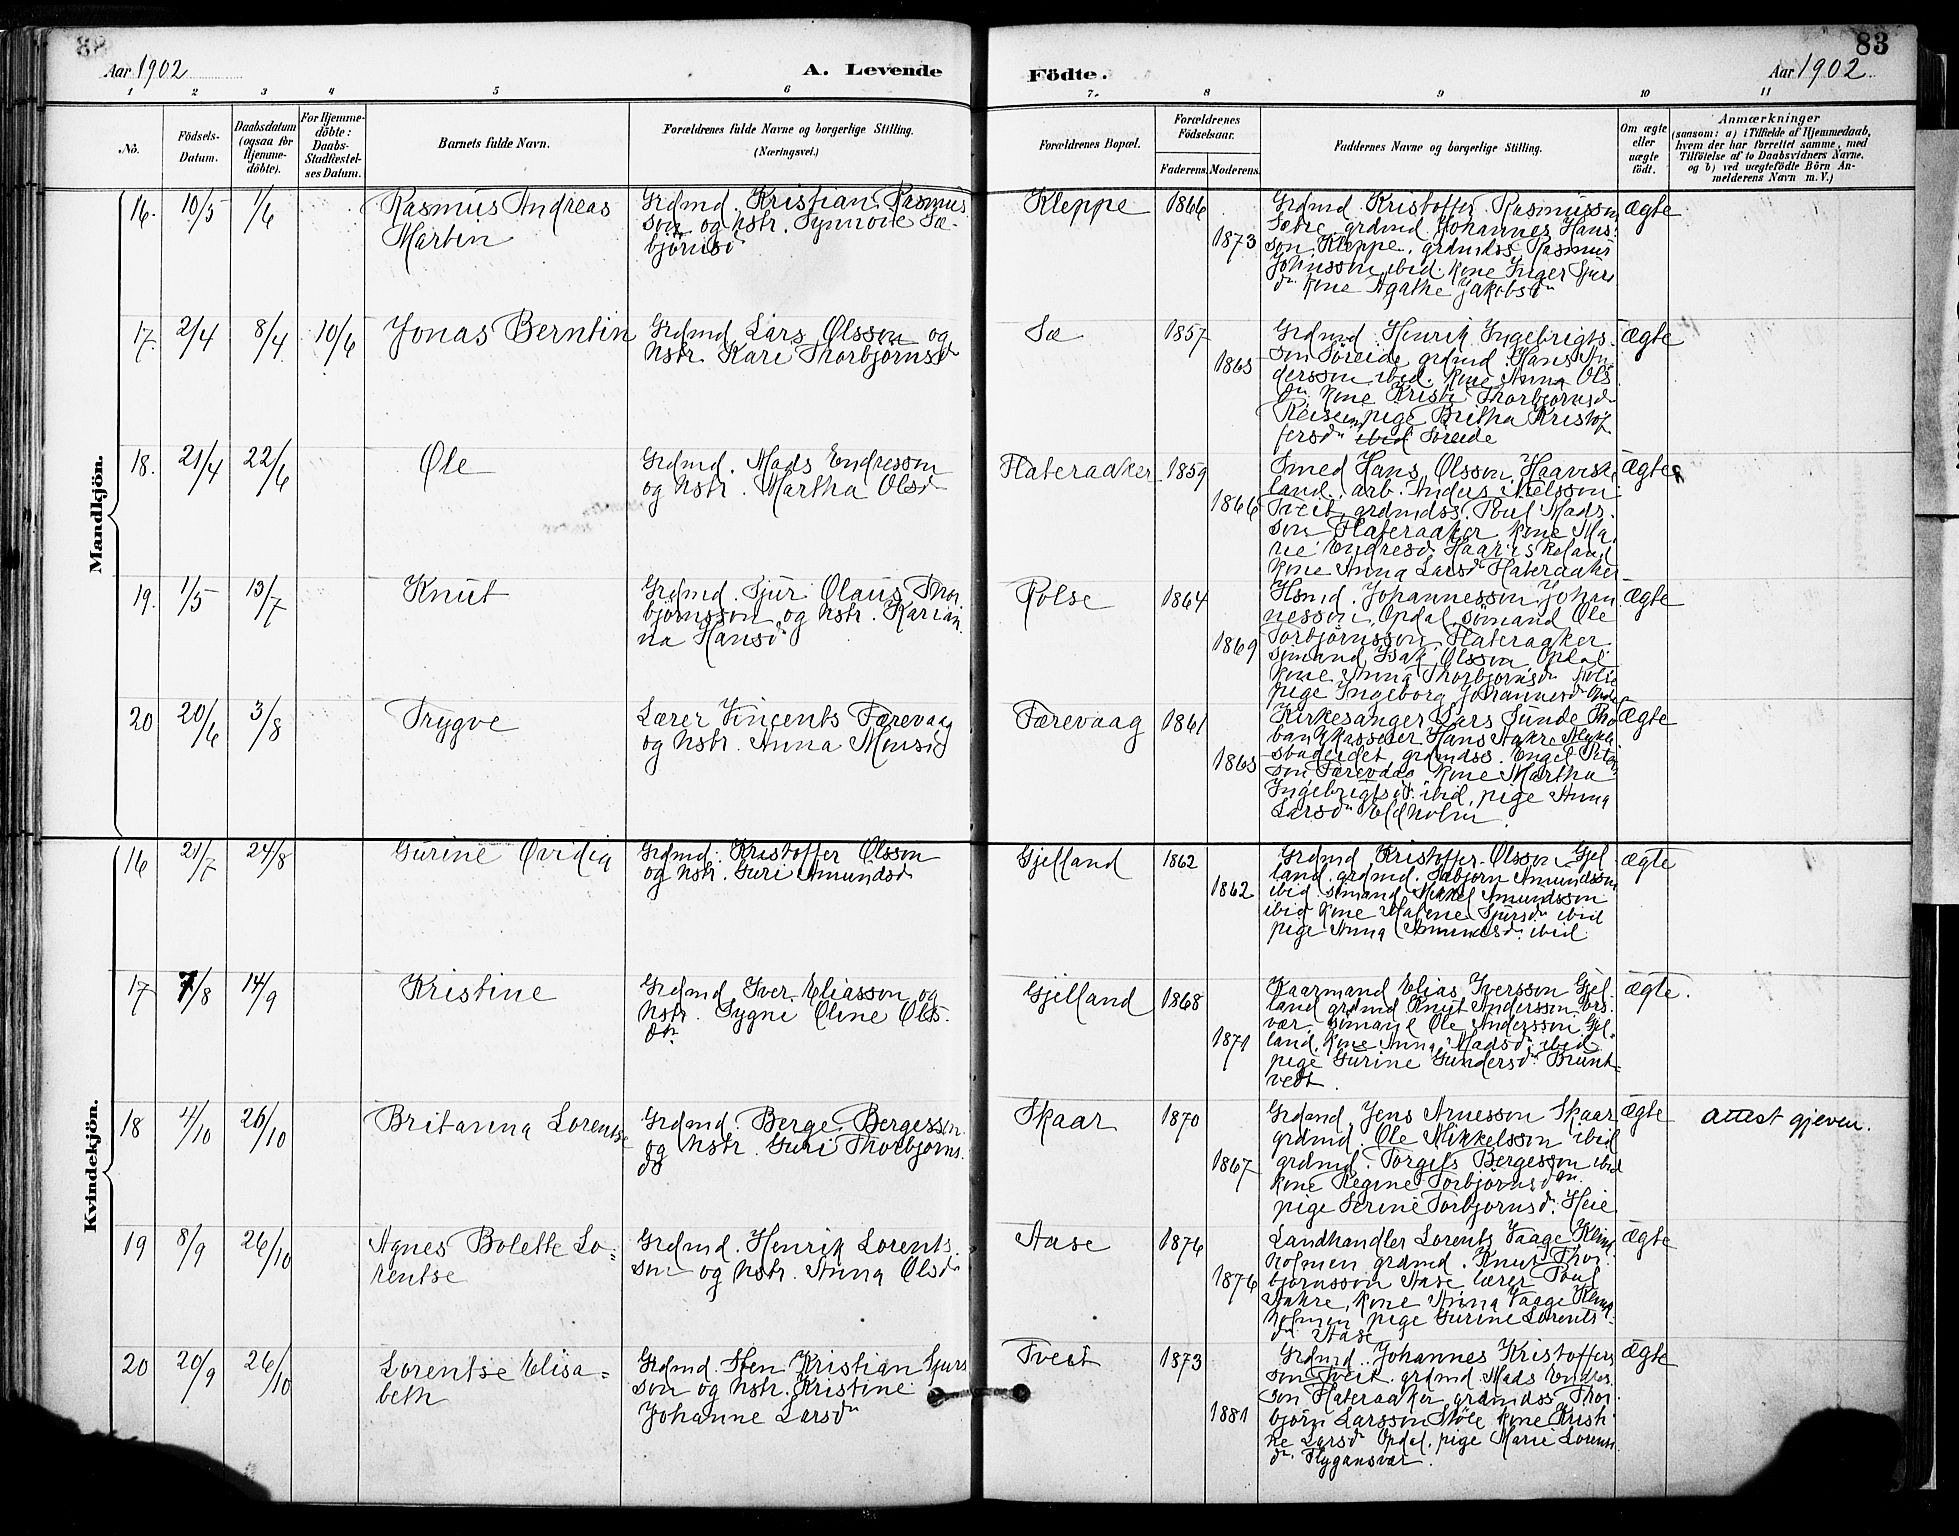 Aar 1902
A. Levende
Födte.
83
Aar 1902
1 2 3 4 5 6 7. 8 9 10 11
No.
Födsels-Datum.
Daabsdatum (ogsaa for Hjemme-döbte).
For Hjemme-döbte: Daabs-Stadfæstel-ses Datum.
Barnets fulde Navn.
Forældrenes fulde Navne og borgerlige Stilling.
(Næringsvei.)
Forældrenes Bopæl.
Forældrenes Födselsaar.
Faderens. Moderens.
Faddernes Navne og borgerlige Stilling.
Om ægte eller uægte födt.
Anmærkninger
(saasom: a) i Tilfælde af Hjemmedaab, hvem der har forrettet samme, med Tilföielse af to Daabsvidners Navne, og b) ved uægtefödte Börn An-melderens Navn m. V.)
Mandkjön.
16. 10/5 1/6
Rasmus Andreas
Martin
Grdmd. Kristian Rasmus
son og hstr. Synnove Sæ-
björnsd
Kleppe 1866
1873
Grdmd Kristoffer Rasmusson
Sætre, grdmd. Johannes Hans-
son Kleppe, grdmdss Rasmus
Johnsson ibid. kone Inger Sjurs
dr kone Agathe Jakobsdr
ægte
17. 2/4 8/4 10/6
Jonas Berntin
Grdmd Lars Olsson og
hstr. Kari Thorbjörnsd
Sæ 1857
1865
Grdmd. Henrik Ingebrigts-
son Söreide, grdmd. Hans An-
dersson ibid. kone Anna Ols
dr. kone Kristi Thorbjörnsdr
pige Britha Kristof
fersdr ibid Söreide
ægte
18. 21/4 22/6
Ole
Grdmd. Mads Endresson
og hstr. Martha Olsd
Flateraaker 1859
1866
Smed Hans Olsson Haaviske-
land, arb. Anders Nielsson
Tveit, grdmdss. Poul Mads-
son Flateraaker, kone Ma-
rie Endresd. Haaviskeland
kone Anna Larsdr Flateraaker
ægte
19. 1/5 13/7
Knut
Grdmd. Sjur Olaus Thor
björnsson og hstr. Karian-
na Hansd
Rolse 1864
1869
Hsmd. Johannesson Johan
nesson, Opdal, sömand Ole
Torbjörnsson, Flateraaker.
sömand Isak Olsson Opdal
kone Anna Thorbjörnsdr Rolse
pige Ingeborg Johannesdr Opdal
ægte
20 20/6 3/8
Trygve
Lærer Vincents Færevaag
og hstr. Anna Monsd
Færevaag 1861
1865
Kirkesanger Lars Sunde
bankkasserer Hans Aakre
grdmdss. Engel Peter
son Færevaag kone Martha
Ingebrigtsd. ibid, pige Anna
Larsdr Eldholm
ægte
Kvindekjön.
16 21/7 24/8
Gurine Ovidia
Grdmd. Kristoffer Olsson
og hstr. Guri Amundsd
Gjelland 1862
1862
Grdmd Kristoffer Olsson Gjel
land, grdmd. Sæbjörn Amundsson
ibid sömand Mikkel Amundsson
ibid kone Malene Sjursdr ibid
pige Anna Amundsdr. ibid
ægte
17 7/8 14/9
Kristine
Grdmd Iver Eliasson og
hstr. Sygni Oline Ols-
dr.
Gjelland 1868
1871
Kaarmand Elias Iversson Gjel-
land grdmd Knut Andersson
vær, sömand Ole Andersson Gjel-
land, kone Anna Madsdr. ibid
pige Gurine Gundersdr. Brunt-
vedt.
ægte.
18 4/10 26/10
Britanna Lorentse
Grdmd. Berge Bergesson
og hstr. Guri Thorbjörns-
dr
Skaar 1870
1867
Grdmd. Jens Arnesson Skaar
grdmd. Ole Mikkelsson ibid
grdmd. Torgils Bergesson ibid
kone Regine Torbjörnsdr.
pige Serine Torbjörnsdr. Heie
ægte
attest gjeven.
19 8/9 26/10
Agnes Bolette Lo-
rentse
Grdmd. Henrik Lorents-
son og hstr. Anna Olsdr
Aase 1876
1876
Landhandler Lorents Vaage Klind
holmen grdmd. Knut Thor-
björnsson Aase, lærer Poul
Aakre, kone Anna Vaage Klind
holmen pige Gurine Lorents-
dr. Aase
ægte
20 20/9 26/10
Lorentse Elisa-
beth
Grdmd. Sten Kristian Sjurs
son og hstr. Kristine
Johanne Larsdr
Tveit 1873
1881
Grdmd. Johannes Kristoffers
son Tveit, grdmd Mads Endres-
son Flateraaker, grdmdss. Thor-
björn Larsson Støle, kone Kristi-
ne Larsdr Opdal, pige Marie Lorents
dr. Flygansvær.
ægte